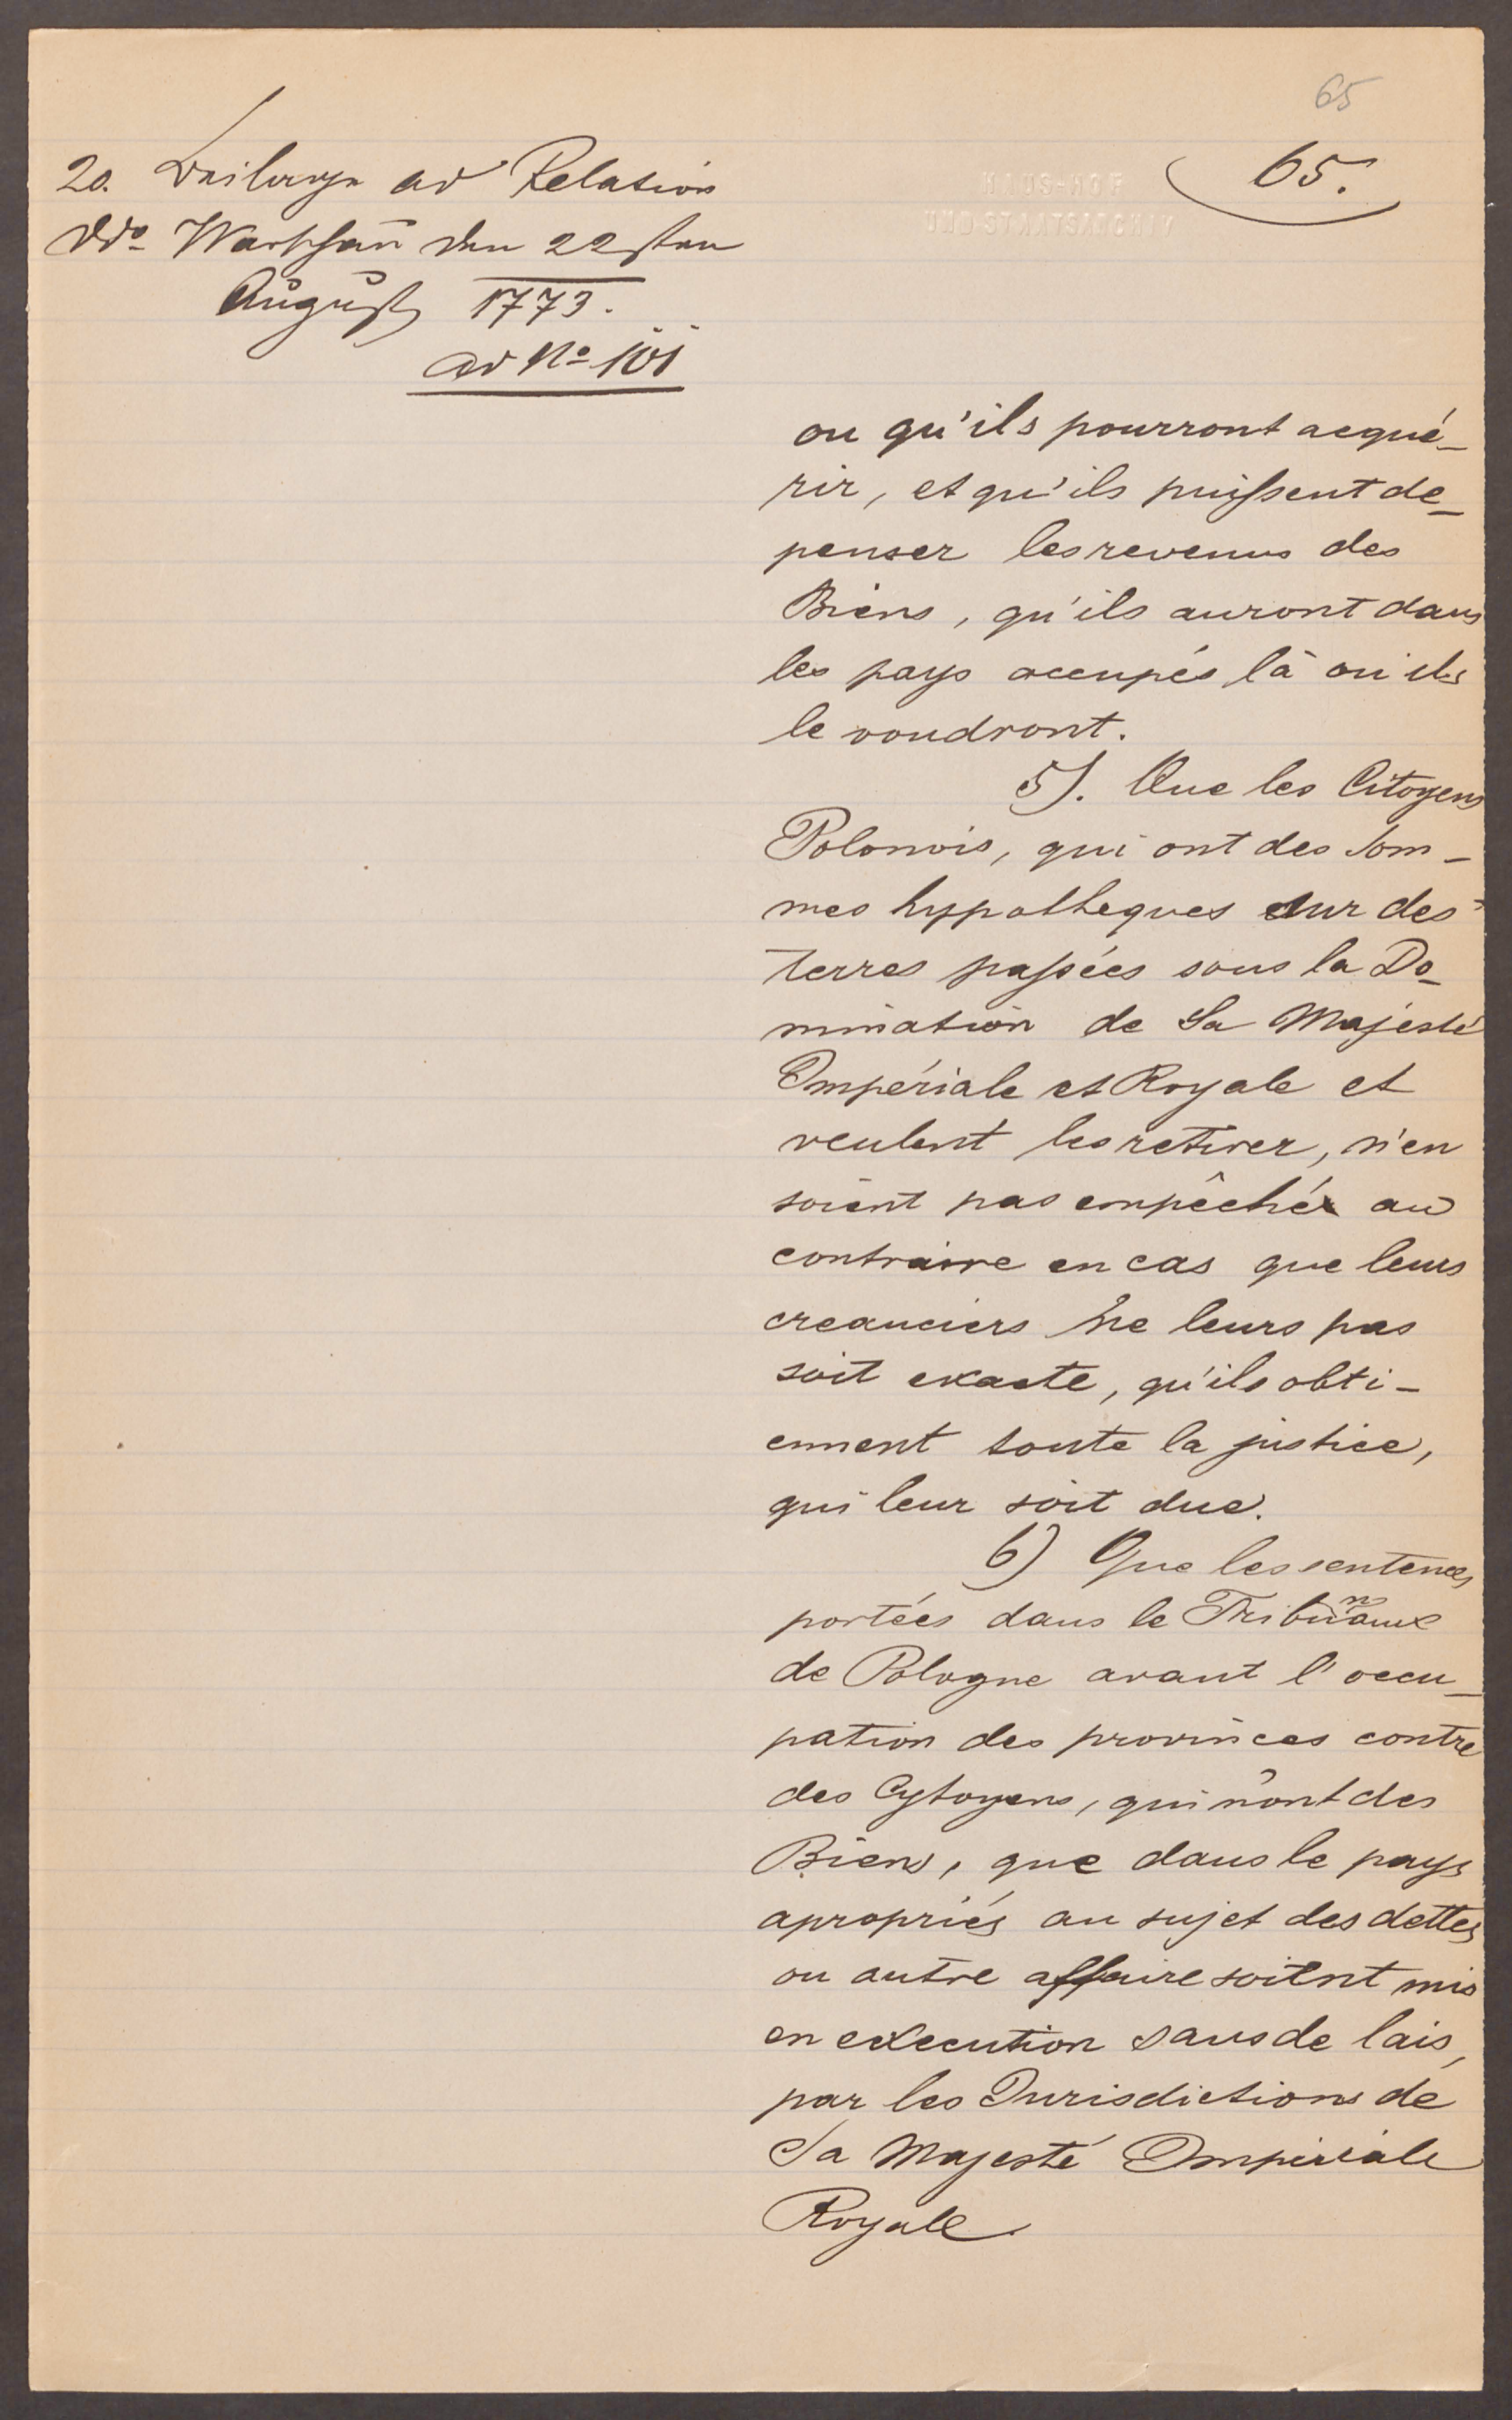 65
65.
HAUS-HOF
UND STAATSARCHIV
20. Beilage ad Relation
ddo Warschau den 22sten
August 1773.
ad No 101
ou qu'ils pourront acqué-
rir, et qu'ils puissent de-
penser les revenus des
Biens, qu'ils auront dans
les pays occupés là ou ils
le voudront.
5). Que les Citoyens
Polonois, qui ont des som-
mes hypotheques sur des
terres passées sous la Do-
mination de Sa Majesté
Impériale et Royale et
veulent les retirer, n'en
soient pas empêchés au
contraire en cas que leurs
creanciers ne leurs pas
soit exacte, qu'ils obti-
ennent toute la justice,
qui leur soit due.
6) Que les sentences
portées dans le Tribunaux
de Pologne avant l'occu-
pation des provinces contre
des Cytoyens, qui n'ont des
Biens, que dans le pays
apropriés au sujet des dettes
ou autre affaire soient mis
en execution sans de lais,
par les Jurisdictions de
Sa Majesté Imperiale
Royale.